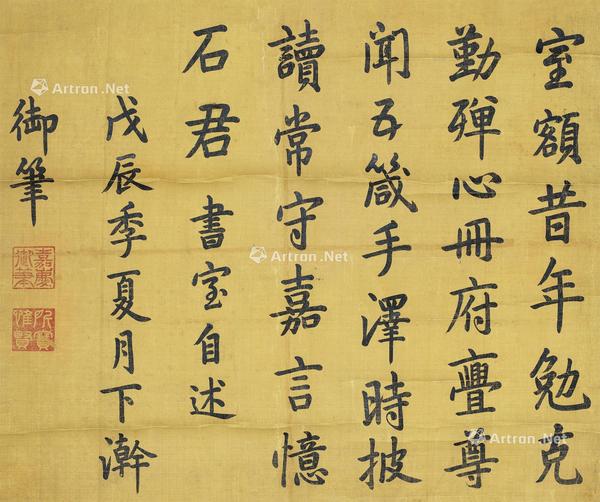 室額昔年勉克
勤殫心冊府亹尊
聞五箴手澤時披
讀常守嘉言憶
石君書室自述
戊辰季夏月下澣
御筆
嘉慶
御筆
所寶
惟賢
Artron.Net
Artron.Net
Artron.Net